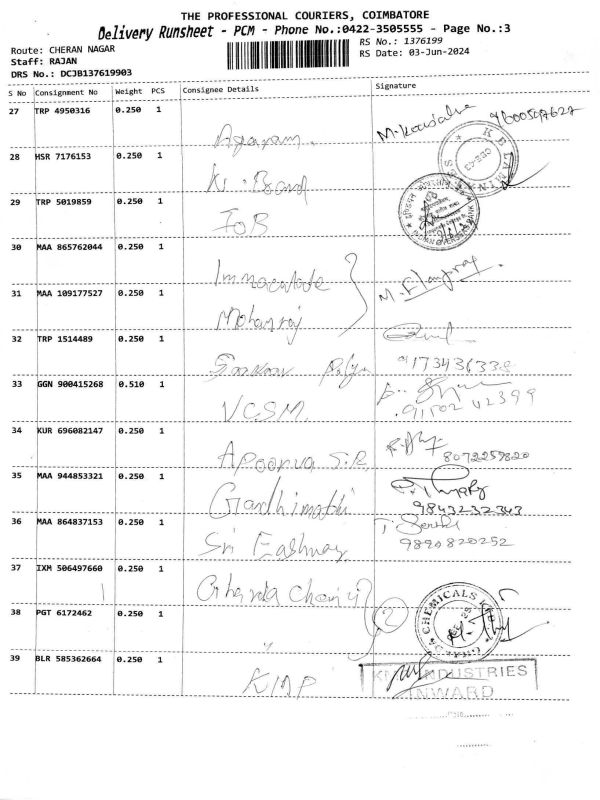 THE PROFESSIONAL COURIERS, COIMBATORE
Delivery Runsheet - PCM - Phone No.:0422-3505555 - Page No.:3
Route: CHERAN NAGAR
RS No.: 1376199
Staff: RAJAN
RS Date: 03-Jun-2024
DRS No.: DCJB137619903
S No Consignment No Weight PCS Consignee Details Signature
27 TRP 4950316 0.250 1
28 HSR 7176153 0.250 1
29 TRP 5019859 0.250 1 IOB
30 MAA 865762044 0.250 1 Immaculate
31 MAA 109177527 0.250 1 Mohanraj
32 TRP 1514489 0.250 1
33 GGN 900415268 0.510 1 VCSM
34 KUR 696082147 0.250 1 Apoorva S.R
8072259820
35 MAA 944853321 0.250 1 Gandhimathi
9843232343
36 MAA 864837153 0.250 1 Sri Eashwar
9890820252
37 IXM 506497660 0.250 1
38 PGT 6172462 0.250 1 " 2
39 BLR 585362664 0.250 1 KMP
INDUSTRIES
INWARD